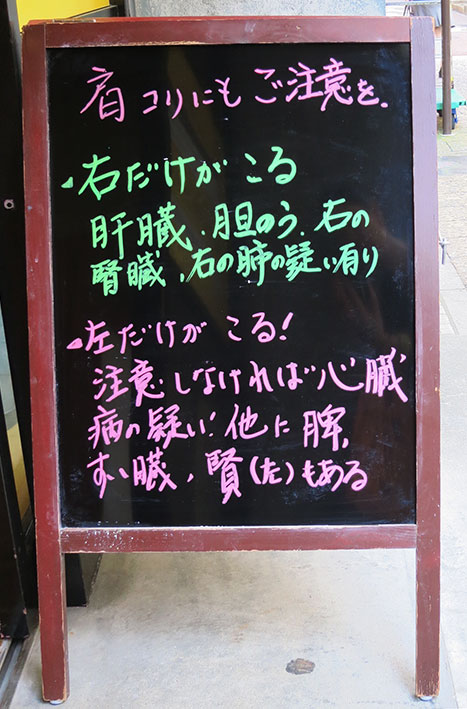 肩コリにもご注意を.
右だけがこる
肝臓、胆のう、右の
腎臓、右の肺の疑い有り
左だけがこる!
注意しなければ心臓
病の疑い!他に脾,
すい臓、賢(左)もある